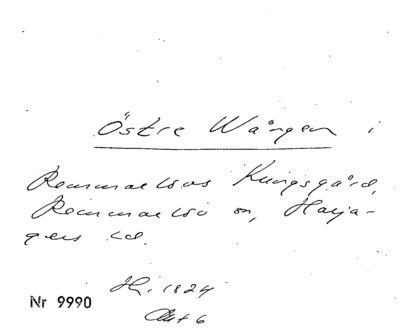 Östre Wången i
Remmarlövs Kungsgård,
Remmarlöv sn, Harja-
gers hd.
Hi. 1824
Akt 6
Nr 9990